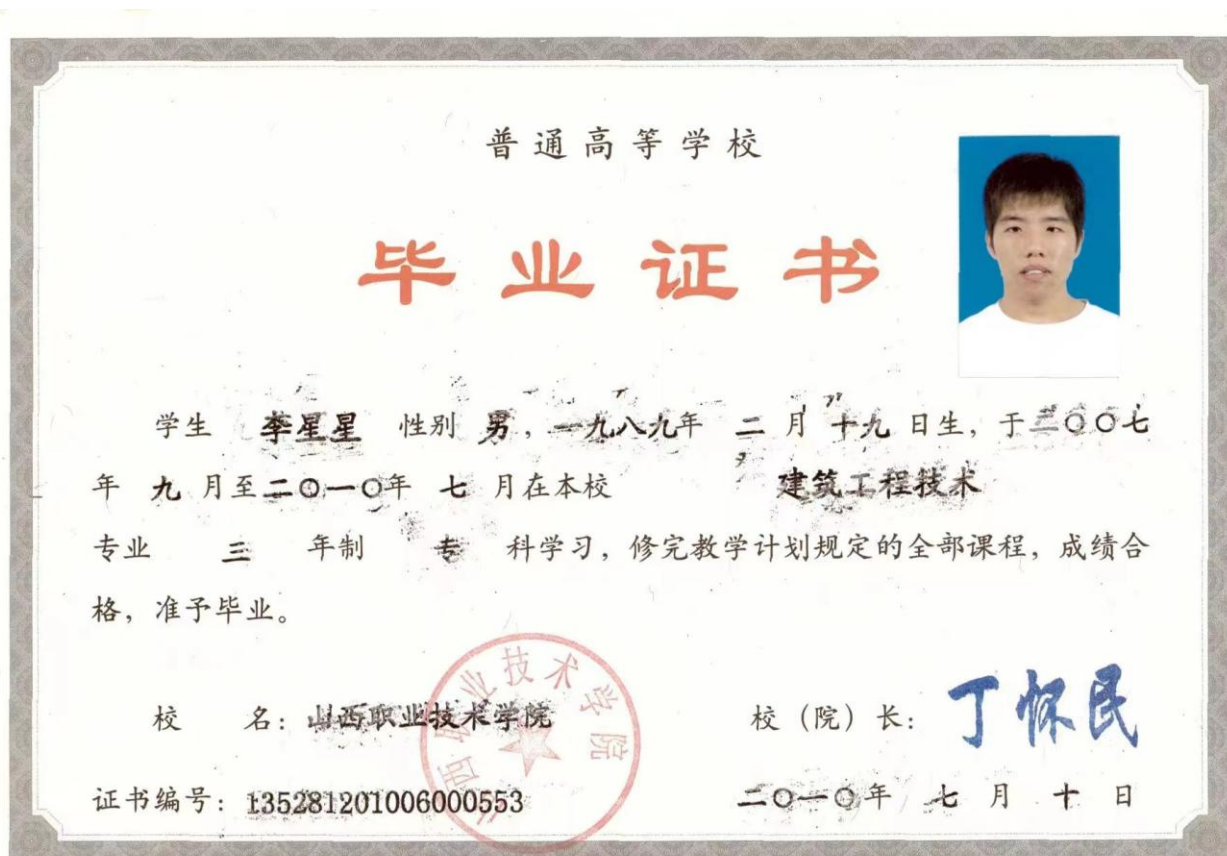 普通高等学校
毕业证书
学生 李星星 性别 男，一九八九年 二 月 十九 日生，于二〇〇七
年 九 月至二〇一〇年 七 月在本校 建筑工程技术
专业 三 年制 专 科学习，修完教学计划规定的全部课程，成绩合
格，准予毕业。
校 名：山西职业技术学院 校（院）长：丁怀民
山西职业技术学院
证书编号：135281201006000553 二〇一〇年 七 月 十 日